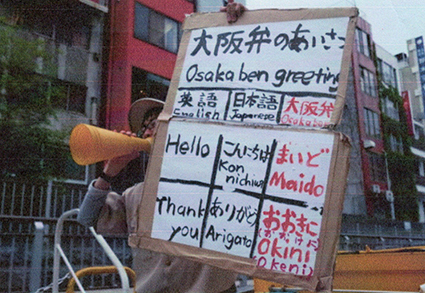 大阪弁のあいさつ
Osaka ben greeting
英語 日本語 大阪弁
English Japanese Osaka ben
Hello こんにちは まいど
Kon nichiwa Maido
Thank you ありがとう おおきに
Arigato Okini
(Okeni)